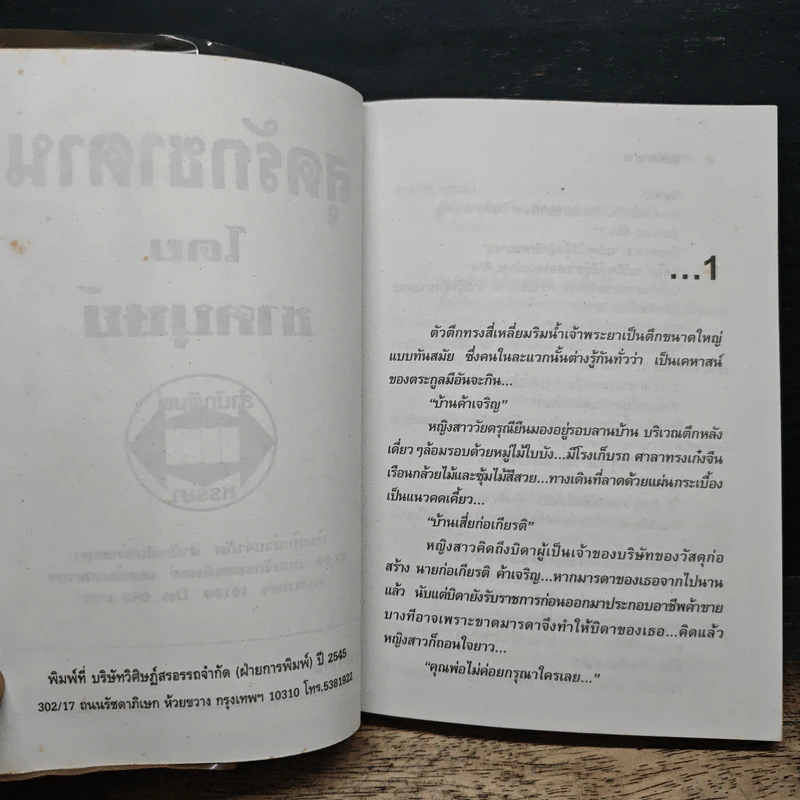 สุดรักซาตาน
โดย
ชาคบุษย์
สำนักพิมพ์
หรรษา
พิมพ์ที่ บริษัทวิศิษฎ์สรอรรถจำกัด (ฝ่ายการพิมพ์) ปี 2545
302/17 ถนนรัชดาภิเษก ห้วยขวาง กรุงเทพฯ 10310 โทร.5381922
...1
ตัวตึกทรงสี่เหลี่ยมริมน้ำเจ้าพระยาเป็นตึกขนาดใหญ่
แบบทันสมัย ซึ่งคนในละแวกนั้นต่างรู้กันทั่วว่า เป็นเคหาสน์
ของตระกูลมีอันจะกิน...
“บ้านค้าเจริญ”
หญิงสาววัยดรุณียืนมองอยู่รอบลานบ้าน บริเวณตึกหลัง
เดี่ยว ๆล้อมรอบด้วยหมู่ไม้ใบบัง...มีโรงเก็บรถ ศาลาทรงเก๋งจีน
เรือนกล้วยไม้และซุ้มไม้สีสวย...ทางเดินที่ลาดด้วยแผ่นกระเบื้อง
เป็นแนวคดเคี้ยว...
“บ้านเสี่ยก่อเกียรติ”
หญิงสาวคิดถึงบิดาผู้เป็นเจ้าของบริษัทของวัสดุก่อ
สร้าง นายก่อเกียรติ ค้าเจริญ...หากมารดาของเธอจากไปนาน
แล้ว นับแต่บิดายังรับราชการก่อนออกมาประกอบอาชีพค้าขาย
บางทีอาจเพราะขาดมารดาจึงทำให้บิดาของเธอ...คิดแล้ว
หญิงสาวก็ถอนใจยาว...
“คุณพ่อไม่ค่อยกรุณาใครเลย...”